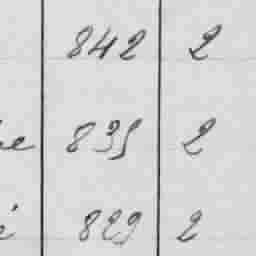 842 2
835 2
829 2